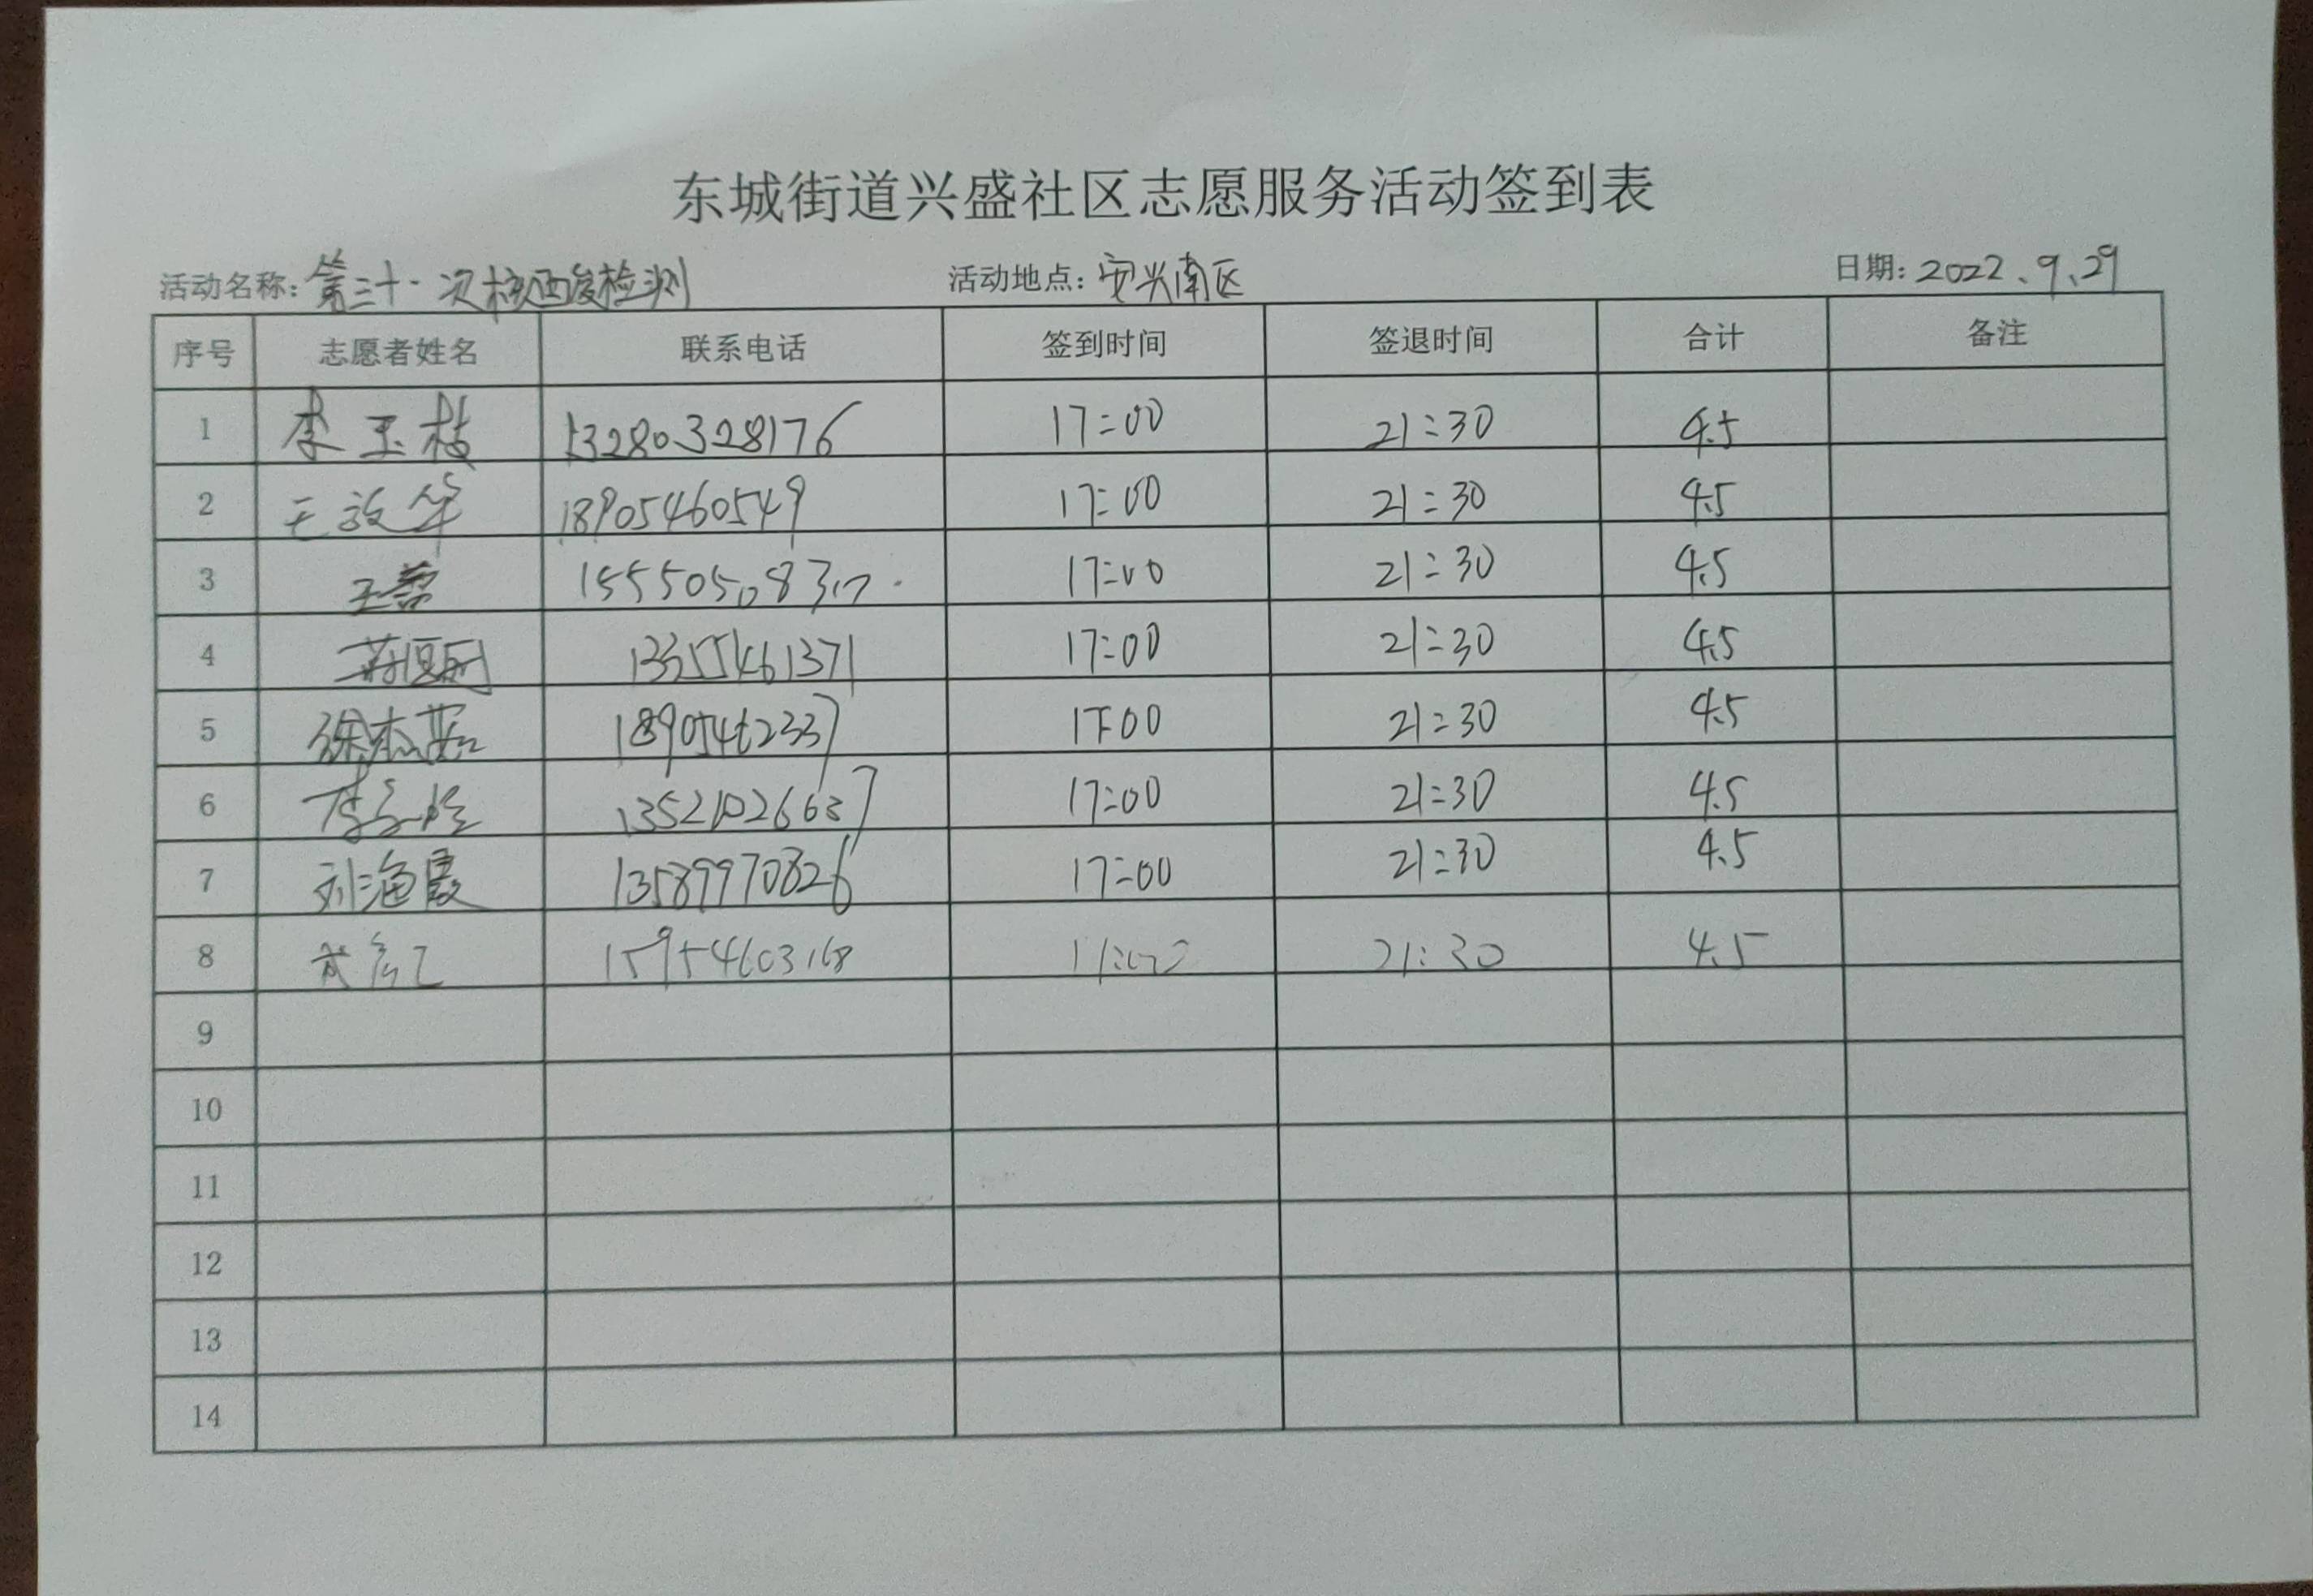 东城街道兴盛社区志愿服务活动签到表
活动名称: 第三十一次核酸检测 活动地点: 安兴南区 日期: 2022、9、29
序号 志愿者姓名 联系电话 签到时间 签退时间 合计 备注
1 李玉枝 13280328176 17:00 21:30 4.5
2 王放华 18905460549 17:00 21:30 4.5
3 17:00 21:30 4.5
4 13355461371 17:00 21:30 4.5
5 徐杰茹 18905462337 17:00 21:30 4.5
6 13521026637 17:00 21:30 4.5
7 刘海霞 13589970826 17:00 21:30 4.5
8 15954603168 21:30 4.5
9
10
11
12
13
14